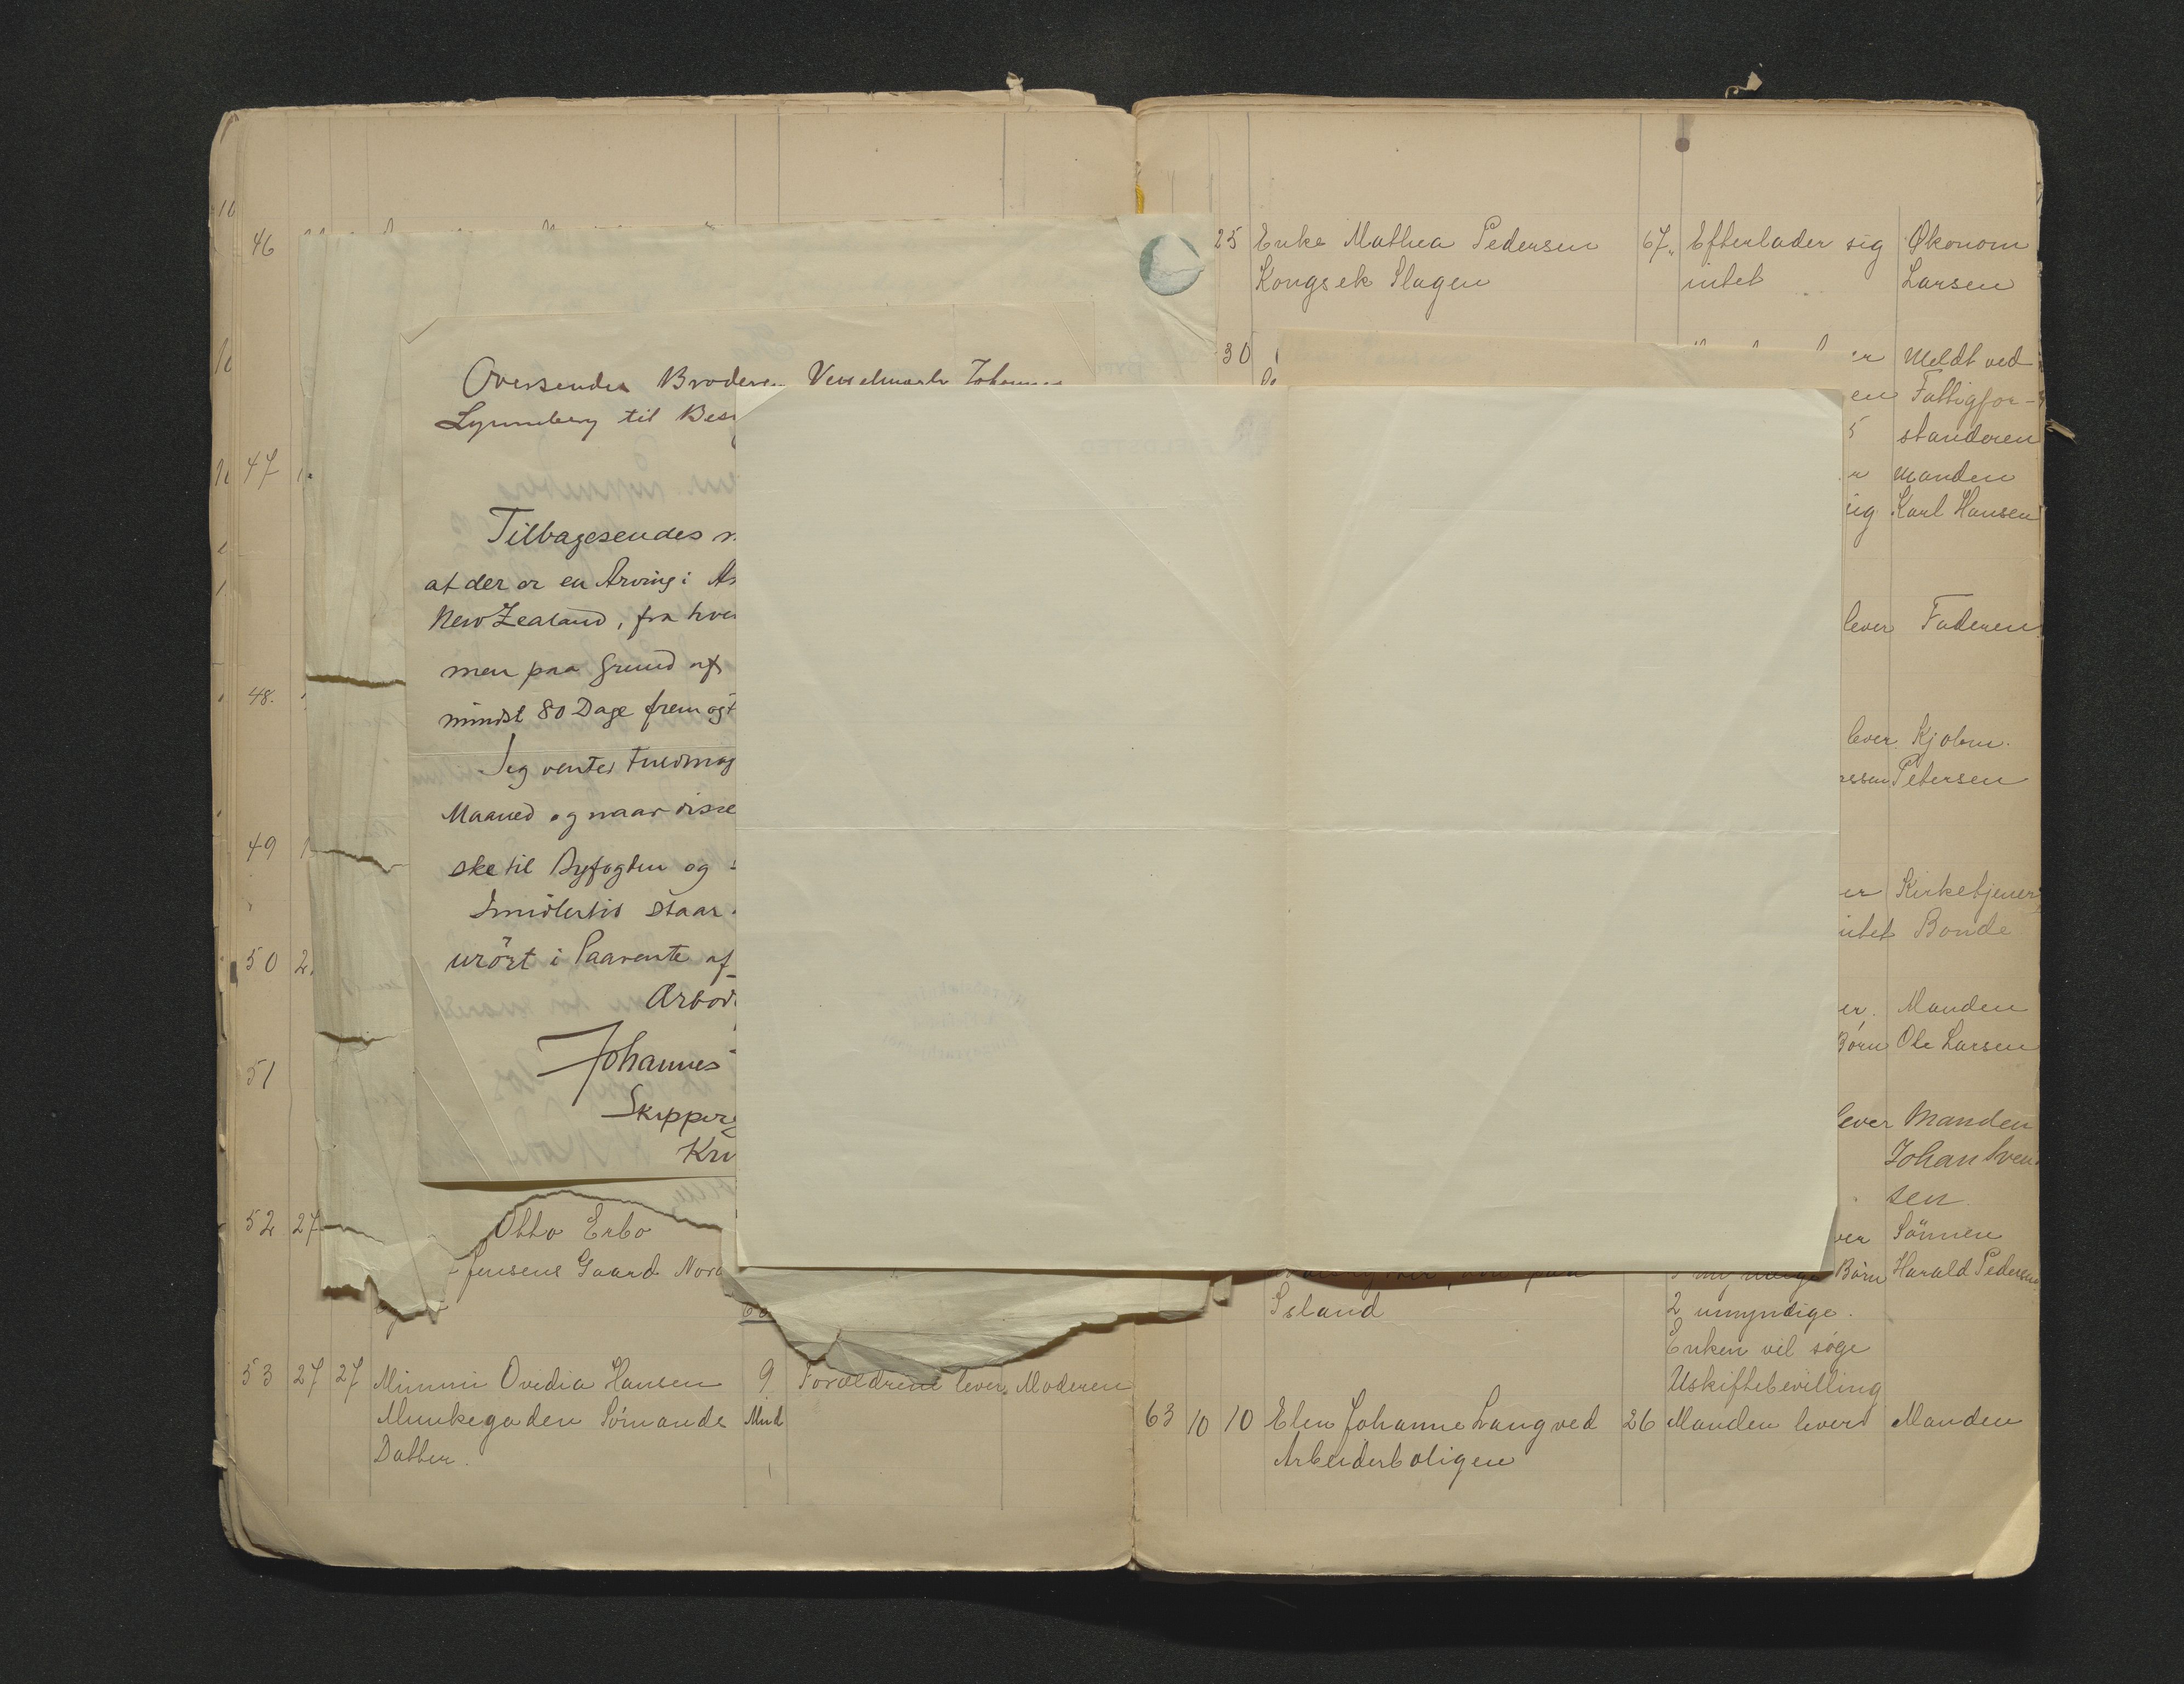 46
47
48.
49
50 2
51
52 27
Otto Erbo
Jensens Gaard
53 27 27 Mimmi Ovidia Hansen 9 Forældrene lever Moderen
Munkegaden Sömands Mnd
Datter.
Oversendes Broderen Johannes
Lynneberg til
Tilbagesendes
at der er en Arving i
New Zealand, fra
men paa Grund af
mindst 80 Dage frem og
Jeg venter
Maaned og naar disse
ske til Byfogden og
Imidlertid staar
urört i Paavente af
Ærbød
Johannes
Skipper
25 Enke Mathea Pedersen 67 Efterlader sig Økonom
Kongsek Slagen intet Larsen
30 er Meldt ved
en Fattigfor-
5 standeren
Manden
ig Karl Hansen
lever Faderen
lever Kjøbm.
Petersen
er Kirketjener
intet Bonde
er. Manden
Börn Ole Larsen
lever Manden
Johan Sven
sen
Sönnen
Börn Harald Pedersen
Island 2 umyndige.
Enken vil söge
Uskiftebevilling
63 10 10 Elen Johanne Lang ved 26 Manden lever Manden
Arbeiderboligen